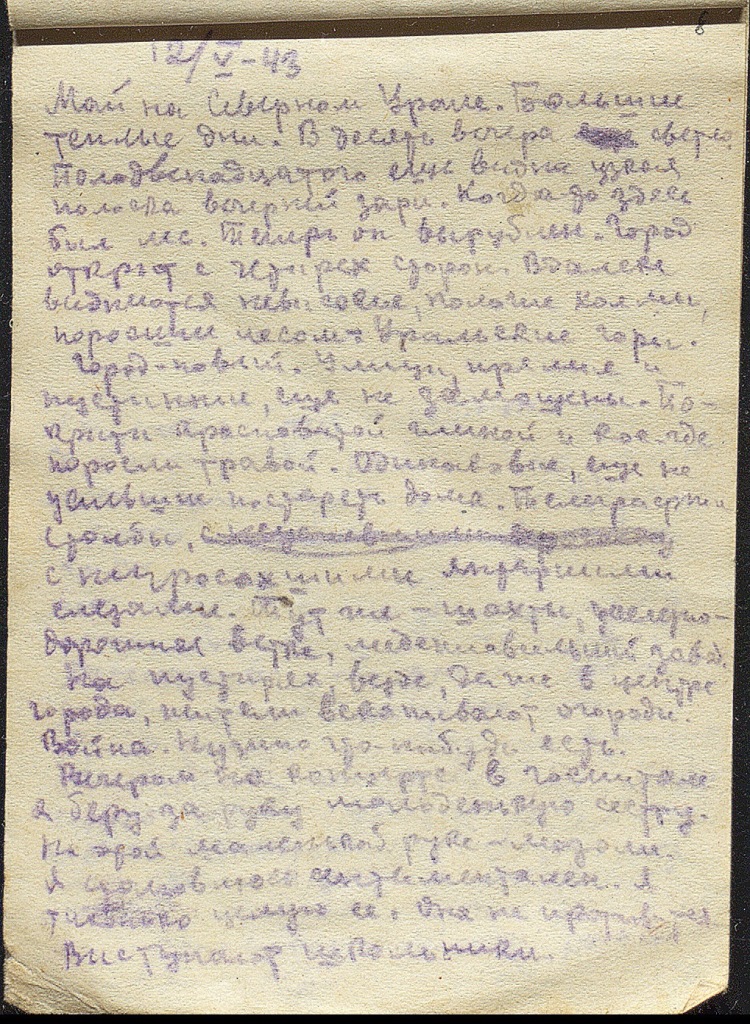 6
12/V-43
Май на Северном Урале. Большие
теплые дни. В десять вечера светло.
Полодвенадцатого еще видна узкая
полоска вечерней зари. Когда-то здесь
был лес. Теперь он вырублен. Город
открыт с четырех сторон. Вдалеке
виднеются невысокие, пологие холмы,
поросшие лесом - Уральские горы.
Город - новый. Улицы, прямые и
пустынные, еще не замощены. По-
крыты красноватой глиной и кое-где
поросли травой. Одинаковые, еще не
успевшие постареть дома. Телеграфные
столбы,
с непросохшими янтарными
слезами. Тут же - шахты, железно-
дорожная ветка, медеплавильный завод.
На пустырях, везде, даже в центре
города, жители вскапывают огороды.
Война. Нужно что-нибудь есть.
Вечером на концерте в госпитале
я беру за руку молоденькую сестру.
На этой маленькой руке - мозоли.
Я становлюсь сентиментален. Я
целую ее. Она не противится.
Выступают школьники.